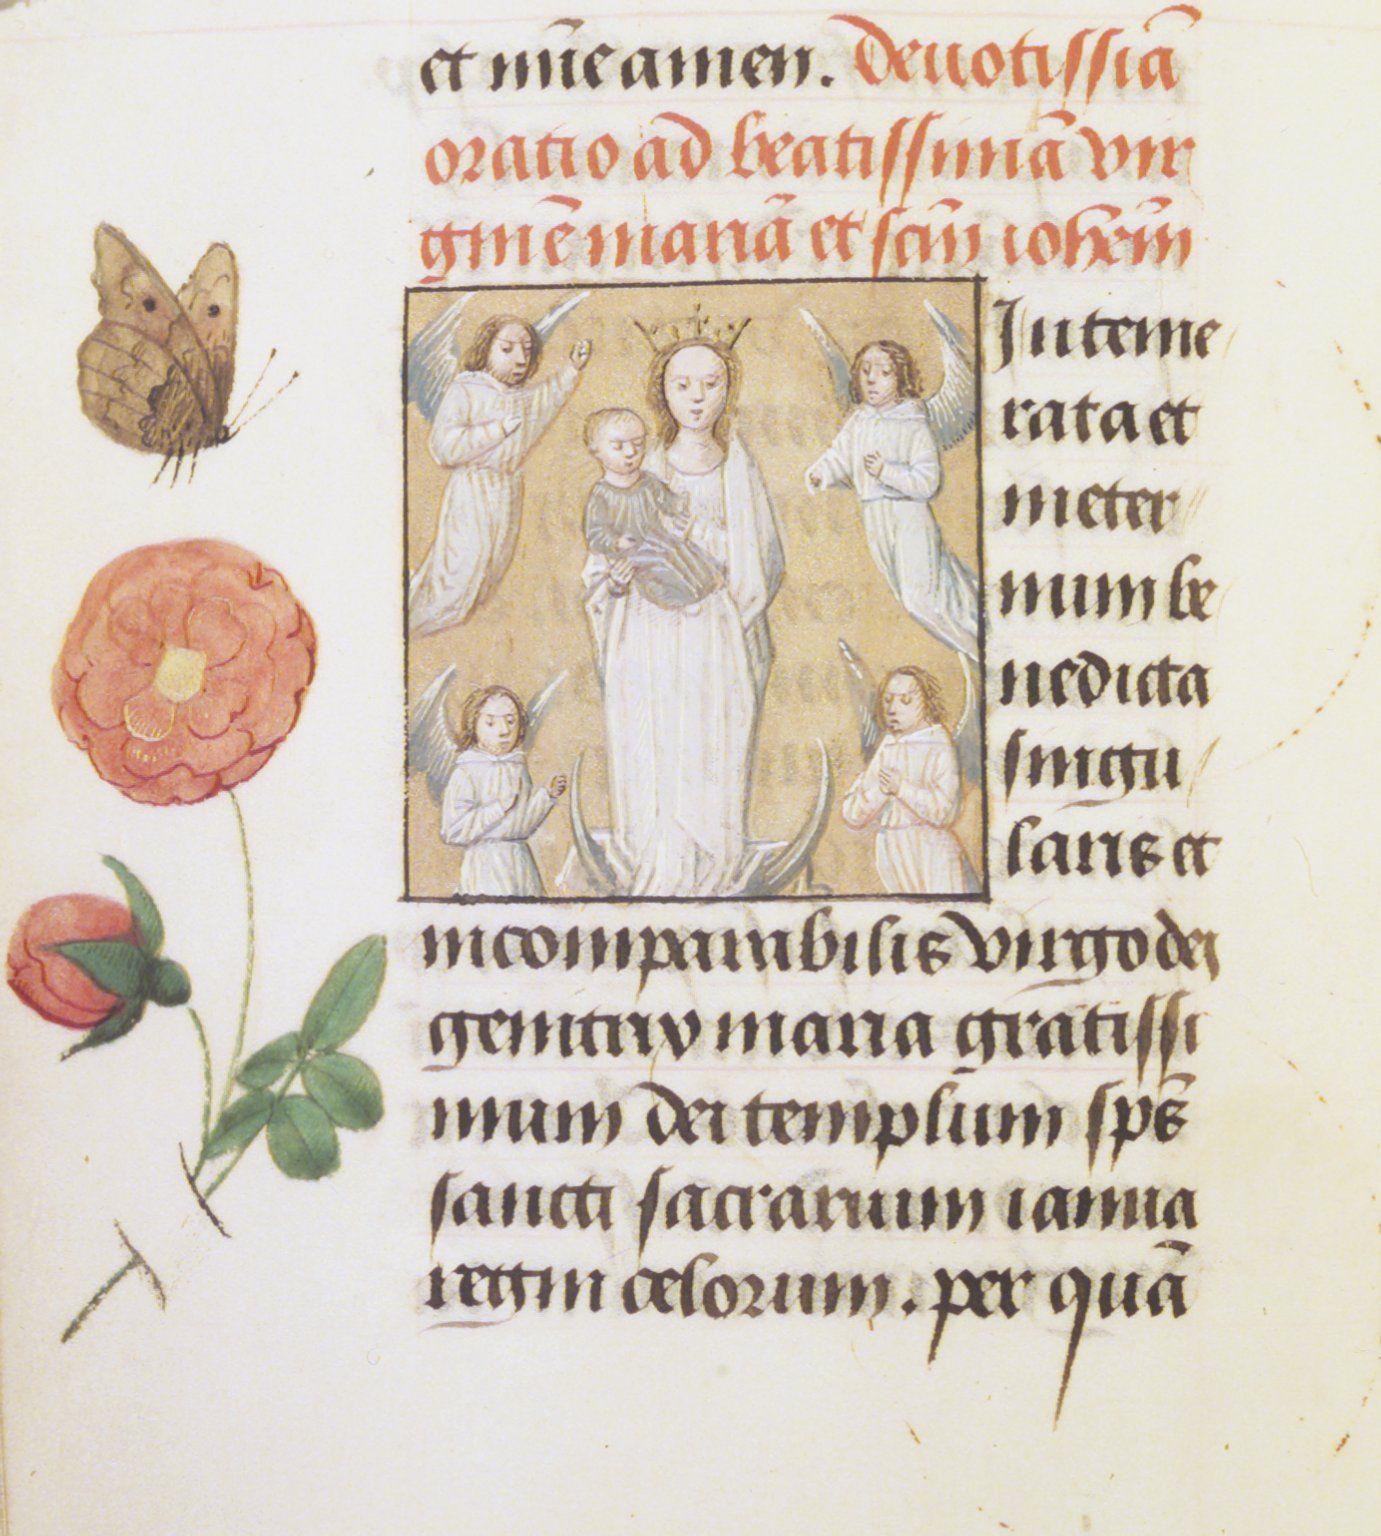 et nūc amen. Deuotissiā
oratio ad beatissimā vir
ginē mariā et scm̄ iohēm
Inteme
rata et
in eter
num be
nedicta
singu
laris et
incomparabilis virgo dei
genitrix maria gratissi
mum dei templum spūs
sancti sacrarium ianua
regni celorum. per quā